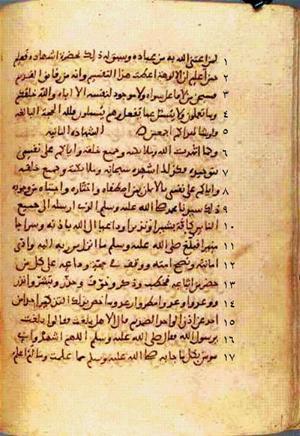 ١ لمن اعتنى الله به من عباده وسبق له ذلك بحضرة اشهاده فعلم
٢ حين اعلم ان الالوهة اعطت هذا التقسيم وانه من رقائق القديم
٣ فسبحن من لا فاعل سواه ولا موجود لنفسه الا اياه والله خلقكم
٤ وما تعملون ولا يسئل عما يفعل وهم يسئلون فلله الحجة البالغة
٥ فلو شا لهداكم اجمعين الشهادة الثانية
٦ وكما اشهدت الله وملائكته وجميع خلقه واياكم على نفسي
٧ بتوحيده فكذلك اشهده سبحانه وملائكته وجميع خلقه
٨ واياكم على نفسي بالايمان بمن اصطفاه واختاره واجتباه من وجوده
٩ ذلك سيدنا محمد صلى الله عليه وسلم الذي ارسله الى جميع
١٠ الناس كافة بشيرا ونذيرا وداعيا الى الله باذنه وسراجا
١١ منيرا فبلغ صلى الله عليه وسلم ما انزل من ربه اليه وادى
١٢ امانته ونصح امته ووقف في حجة وداعه على كل من
١٣ حضر من اتباعه فخطب وذكر وخوف وحذر وبشر وانذر
١٤ ووعد واوعد وامطر وارعد وما خص بذلك التذكير احدا من
١٥ احد عن اذن الواحد الصمد ثم قال الا هل بلغت فقالوا بلغت
١٦ يرسول الله فقال صلى الله عليه وسلم اللهم اشهد واني
١٧ مومن بكل ما جا به صلى الله عليه وسلم مما علمت وما لم اعلم